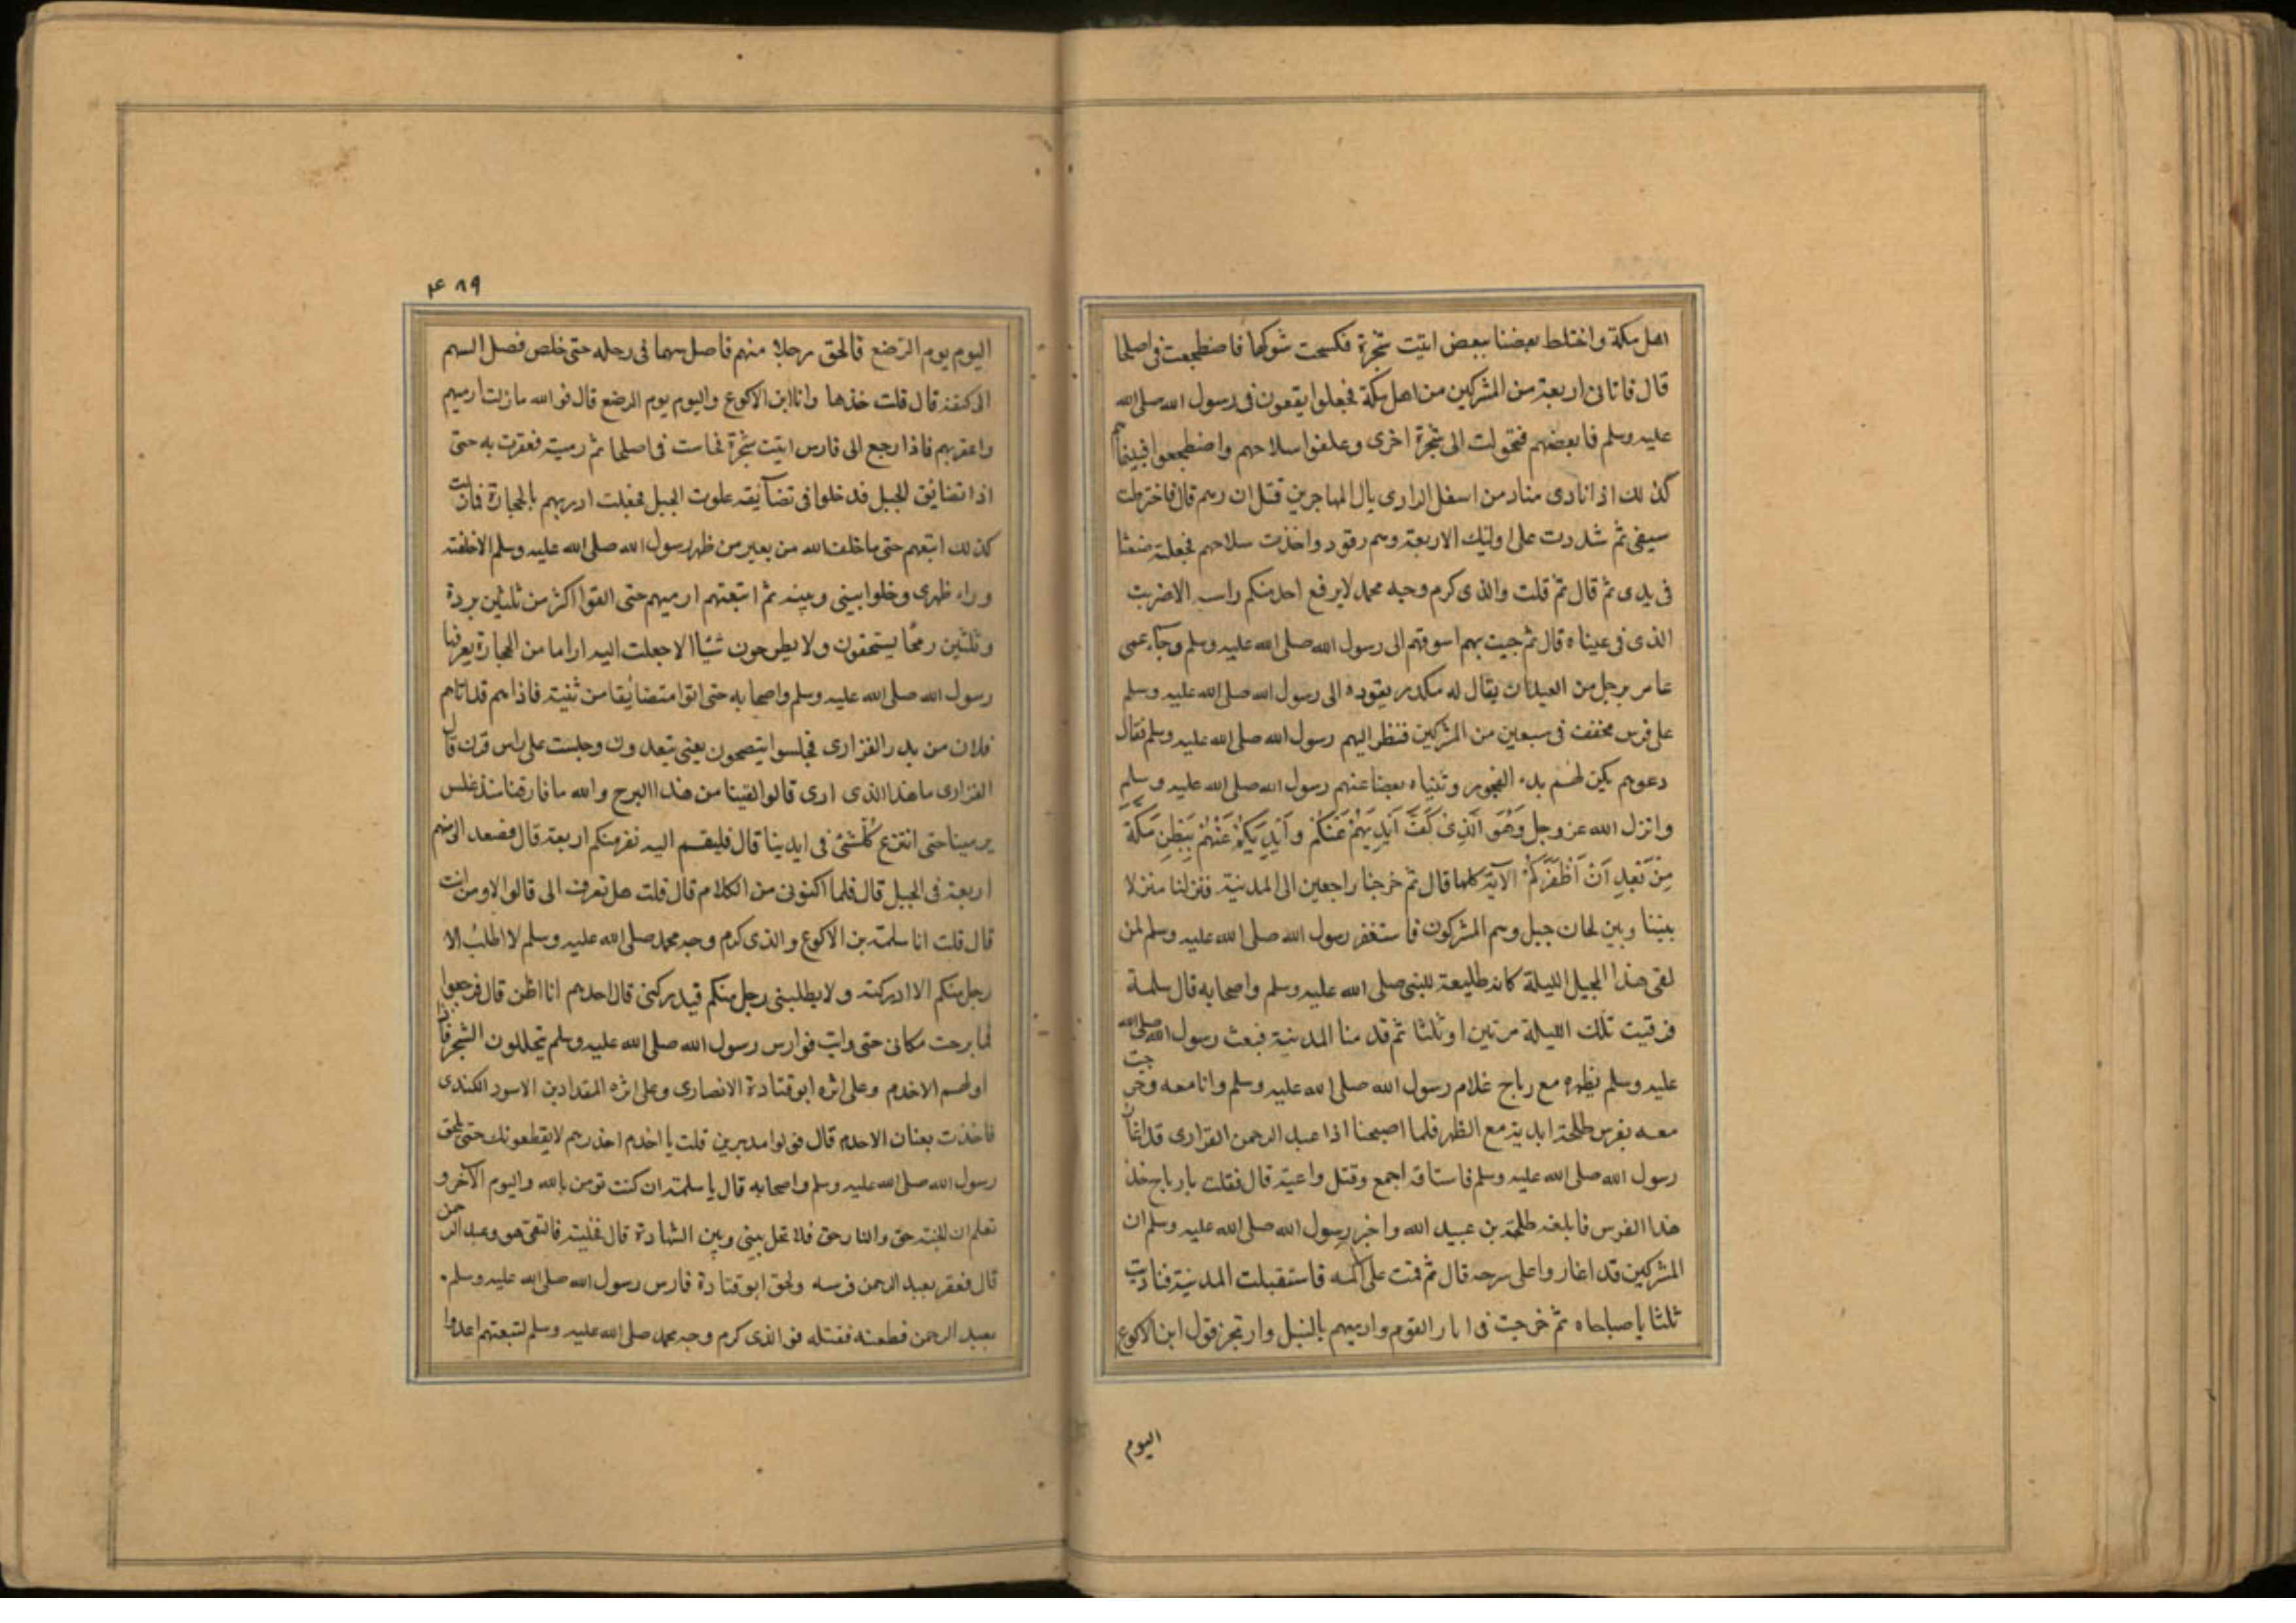 اهل مكة واختلط بعضنا ببعض اتيت شجرة فكسحت شوكها فاضطجعت فى اصلها
قال فاتانى اربعة من المشركين من اهل مكة فجعلوا يقعون فى رسول الله صلى الله
عليه وسلم فابعضهم فتحولت الى شجرة اخرى وعلقوا سلاحهم واضطجعوا فبينما هم
كذلك اذا نادى مناد من اسفل الوادى يال المهاجرين قتل ان رسم قال فاخترطت
سيفى ثم شددت على اوليك الاربعة وهم رقود واخذت سلاحهم فجعلته ضغثا
فى يدى ثم قال ثم قلت والذى كرم وجه محمد لا يرفع احد منكم راسه الا ضربت
الذى فى عيناه قال ثم جيت بهم اسوقهم الى رسول الله صلى الله عليه وسلم وجاء عمى
عامر برجل من العبلات يقال له مكدر يقوده الى رسول الله صلى الله عليه وسلم
على فرس مخفف فى سبعين من المشركين فنظر اليهم رسول الله صلى الله عليه وسلم فقال
دعوهم يكن لهم بدء الفجور وثنياه بعضا عنهم رسول الله صلى الله عليه وسلم
وانزل الله عز وجل وَهُوَ الَّذِى كَفَّ اَيْدِيَهُمْ عَنْكُمْ وَاَيْدِيَكُمْ عَنْهُمْ بِبَطْنِ مَكَّةَ
مِنْ بَعْدِ اَنْ اَظْفَرَكُمْ الآية كلها قال ثم خرجنا راجعين الى المدينة فنزلنا منزلا
بيننا وبين لحان جبل وهم المشركون فاستغفر رسول الله صلى الله عليه وسلم لمن
لقى هذا الجبل الليلة كانه طليعة للنبى صلى الله عليه وسلم واصحابه قال سلمة
فرقيت تلك الليلة مرتين او ثلثا ثم قدمنا المدينة فبعث رسول الله صلى الله
عليه وسلم بظهره مع رباح غلام رسول الله صلى الله عليه وسلم وانا معه وخرجت
معه بفرس طلحة ابديه مع الظهر فلما اصبحنا اذا عبد الرحمن الفزارى قد اغار
رسول الله صلى الله عليه وسلم فاستاقه اجمع وقتل راعيه قال فقلت يا رباح خذ
هذا الفرس فابلغه طلحة بن عبيد الله واخبر رسول الله صلى الله عليه وسلم ان
المشركين قد اغاروا على سرحه قال ثم قمت على اكمه فاستقبلت المدينة فناديت
ثلثا يا صباحاه ثم خرجت فى اثار القوم وارميهم بالنبل وارتجز قول ابن الاكوع
اليوم
٤٨٩
اليوم يوم الرضع فالحق رجلا منهم فاصل سهما فى رحله حتى خلص فصل السهم
الى كتفه قال قلت خذها وانا ابن الاكوع واليوم يوم الرضع قال فوالله ما زلت ارميهم
واعقر بهم فاذا رجع الى فارس اتيت شجرة فجاست فى اصلها ثم رميته فعقرت به حتى
اذا تضايق الجبل فدخلوا فى تضايقه علوت الجبل فجعلت ارديهم بالحجارة فما زلت
كذلك اتبعهم حتى ما خلف الله من بعير من ظهر رسول الله صلى الله عليه وسلم الا خلفته
وراء ظهرى وخلوا بينى وبينه ثم اتبعتهم ارميهم حتى القوا اكثر من ثلثين بردة
وثلثين رمحا يستخفون ولا يطرحون شيئا الا جعلت اليه اراما من الحجارة يعرفها
رسول الله صلى الله عليه وسلم واصحابه حتى اتوا متضايقا من ثنية فاذا هم قد اتاهم
فلان من بدر الفزارى فجلسوا يتضحون يعنى يتغدون وجلست على راس قرن قال
الفزارى ما هذا الذى ارى قالوا لقينا من هذا البرح والله ما فارقنا منذ غلس
يرمينا حتى انتزع كل شئ فى ايدينا قال فليقم اليه نفر منكم اربعة قال فصعد الى منهم
اربعة فى الجبل قال فلما اكنونى من الكلام قال قلت هل تعرف الى قالوا لا ومن انت
قال قلت انا سلمة بن الاكوع والذى كرم وجه محمد صلى الله عليه وسلم لا اطلب الا
رجل منكم الا ادركته ولا يطلبنى رجل منكم فيدركنى قال احدهم انا اظن قال فرجعوا
فما برحت مكانى حتى رايت فوارس رسول الله صلى الله عليه وسلم يتخللون الشجر فاذا
اولهم الاخدم وعلى اثره ابو قتادة الانصارى وعلى اثره المقداد بن الاسود الكندى
فاخذت بعنان الاخدم قال فولوا مدبرين قلت يا اخدم احذرهم لا يقطعونك حتى يلحق
رسول الله صلى الله عليه وسلم واصحابه قال يا سلمة ان كنت تومن بالله واليوم الآخر و
تعلم ان الجنة حق والنار حق فلا تحل بينى وبين الشهادة قال فخليته فالتقى هو وعبد الرحمن
قال فعقر بعبد الرحمن فرسه ولحق ابو قتادة فارس رسول الله صلى الله عليه وسلم
بعبد الرحمن فطعنه فقتله فوالذى كرم وجه محمد صلى الله عليه وسلم لتبعتهم اعدوا